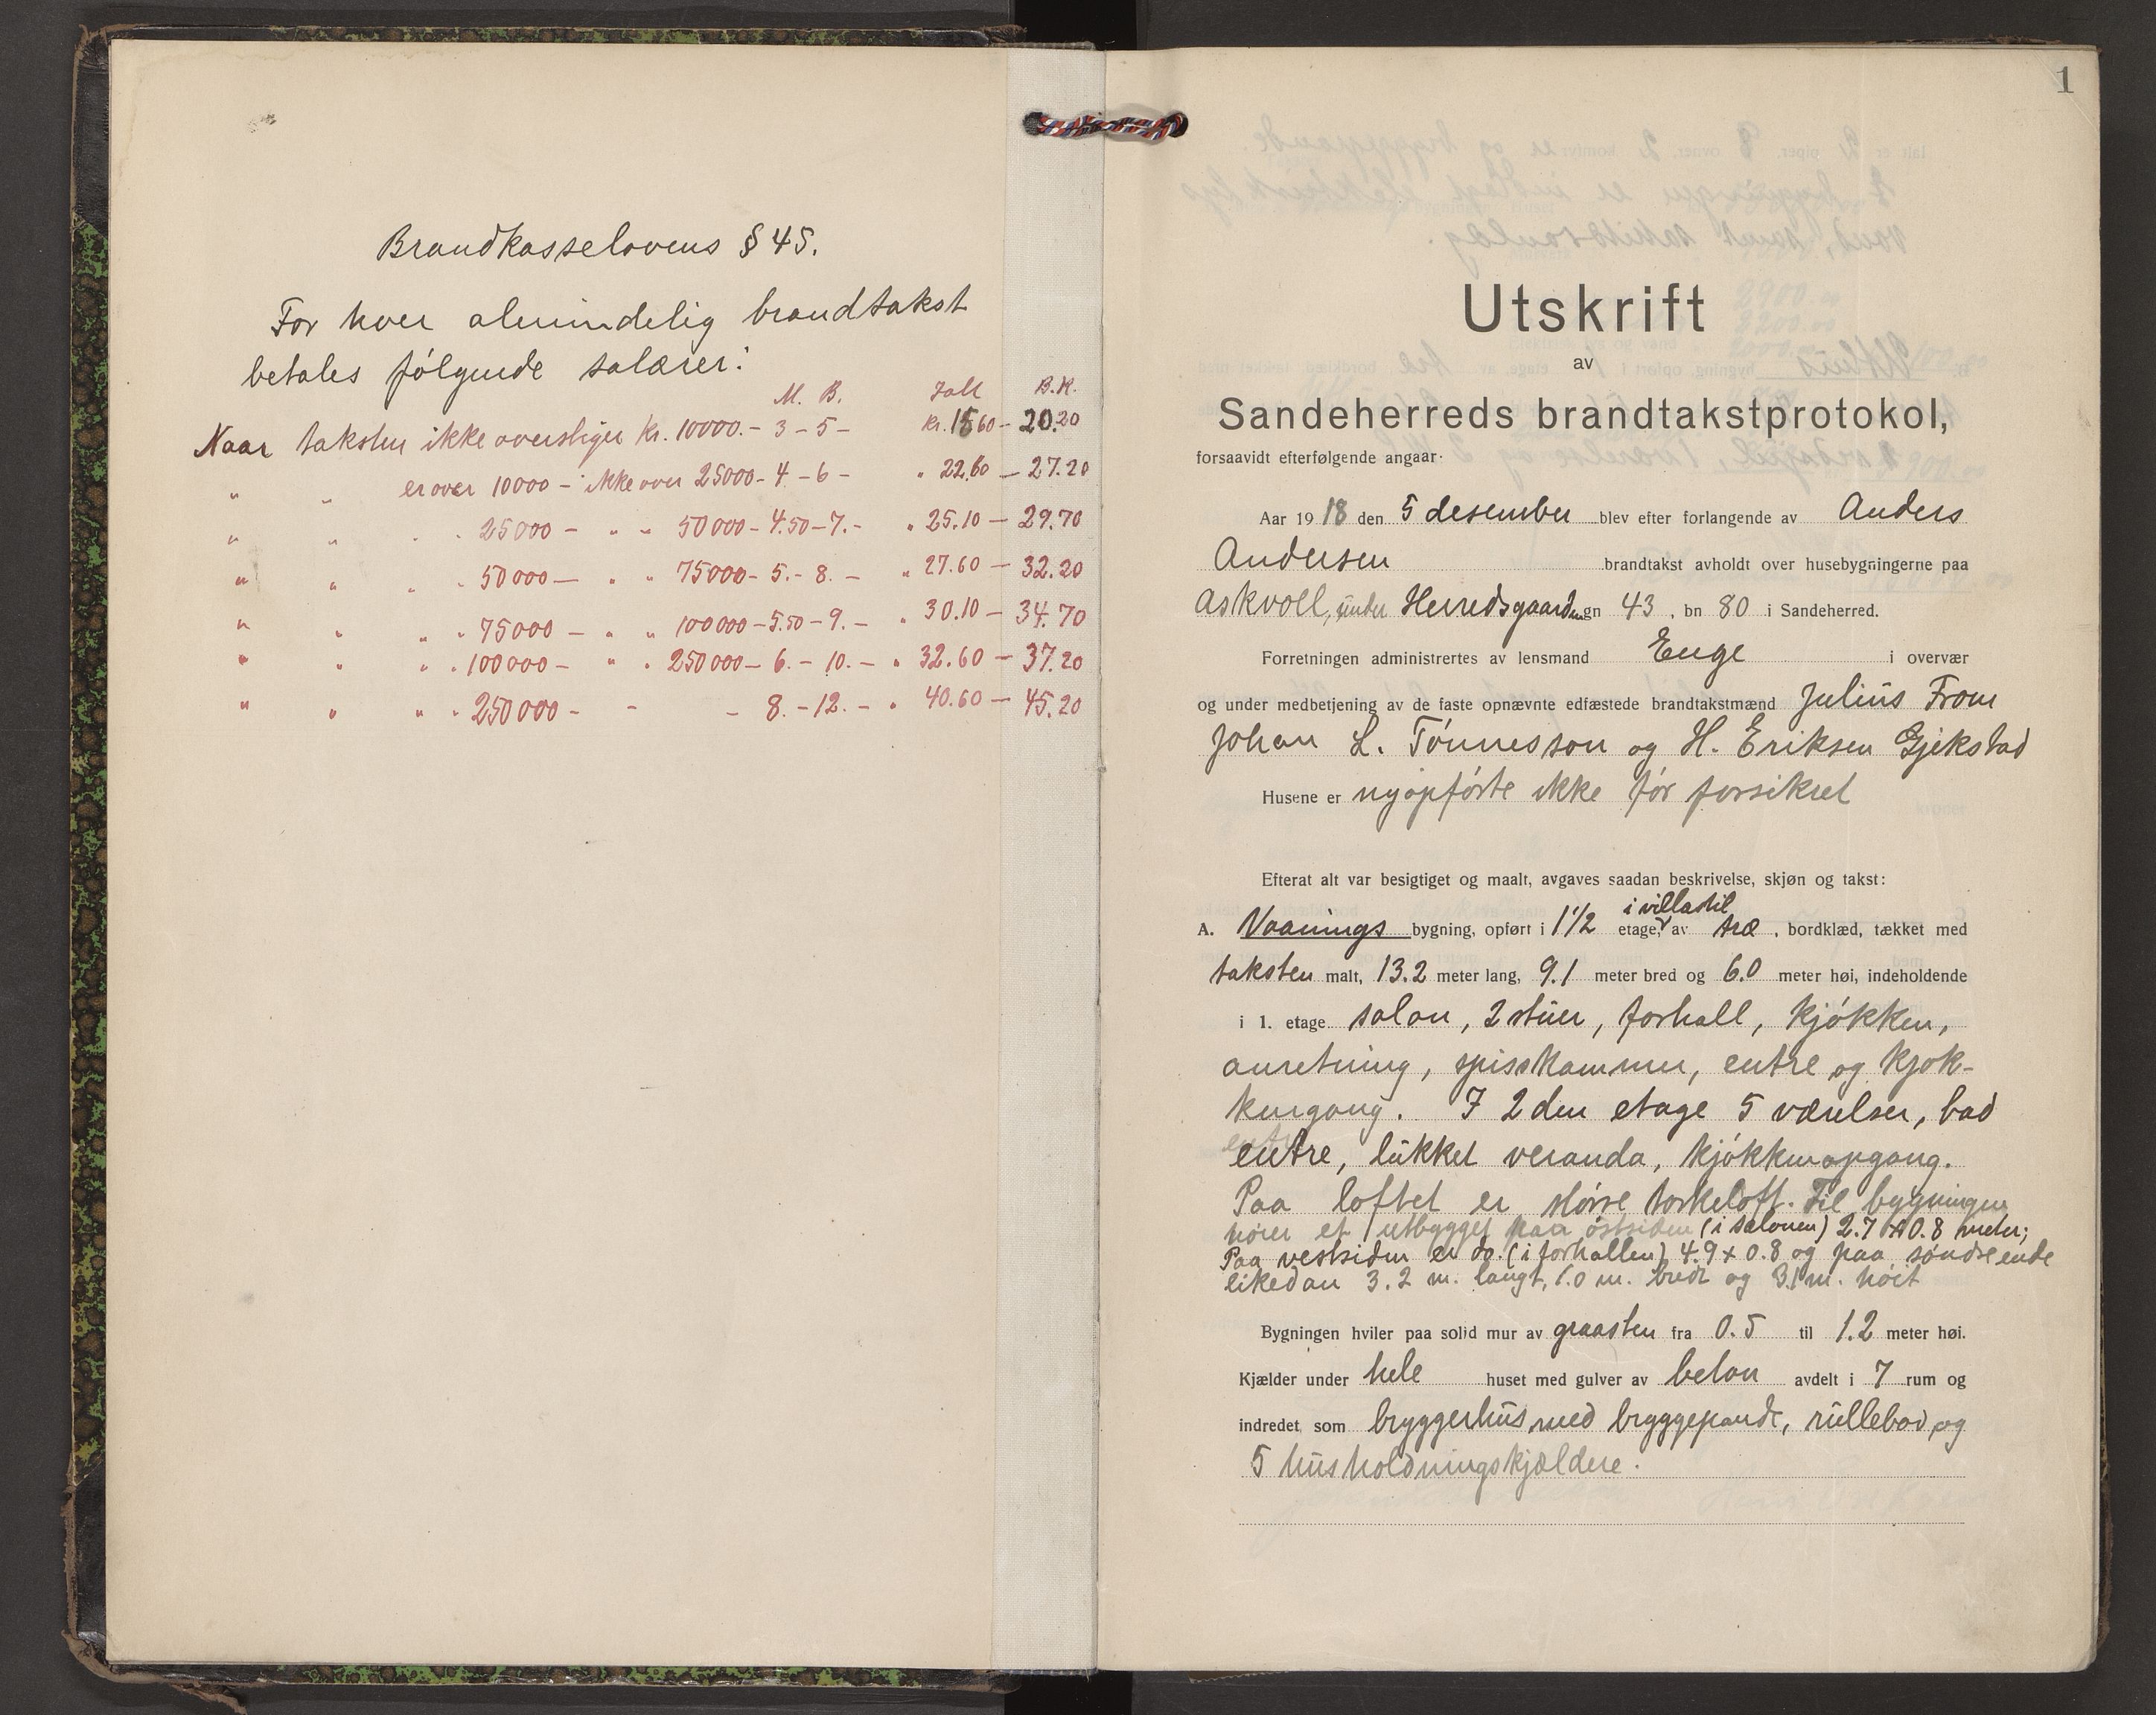 Brandkasselovens § 45.
For hver almindelig brandtakst
betales følgende salærer:
M. B. Ialt B.K.
Naar taksten ikke overstiger kr. 10000.- 3 - 5 - kr. 15.60 - 20.20
" " er over 10000 - ikke over 25000 - 4 - 6 - " 22.60 - 27.20
" " " " 25000 - " " 50000 - 4.50 - 7.- " 25.10 - 29.70
" " " " 50000 - " " 75000 - 5.- 8.- " 27.60 - 32.20
" " " " 75000 - " " 100000 - 5.50 - 9.- " 30.10 - 34.70
" " " " 100000 - " " 250000 - 6.- 10.- " 32.60 - 37.20
" " " " 250000 - - - 8.- 12.- " 40.60 - 45.20
1
Utskrift
av
Sandeherreds brandtakstprotokol,
forsaavidt efterfølgende angaar:
Aar 1918 den 5 desember blev efter forlangende av Anders
Andersen brandtakst avholdt over husebygningerne paa
Askvoll, under Herredsgaarden gn 43, bn 80 i Sandeherred.
Forretningen administrertes av lensmand Enge i overvær
og under medbetjening av de faste opnævnte edfæstede brandtakstmænd Julius From
Johan L. Tønnesson og H. Eriksen Gjekstad
Husene er nyopførte ikke før forsikret
Efterat alt var besigtiget og maalt, avgaves saadan beskrivelse, skjøn og takst:
i villastil
A. Vaanings bygning, opført i 1 1/2 etage, av træ, bordklæd, tækket med
taksten malt, 13.2 meter lang, 9.1 meter bred og 6.0 meter høi, indeholdende
i 1. etage salon, 2 stuer, forhall, kjøkken,
anretning, spisskammer, entre og kjøk-
kengang. I 2den etage 5 værelser, bad
entre, lukket veranda, kjøkkenopgang.
Paa loftet er større tørkeloft. Til bygningen
hører et utbygget paa østsiden (i salonen) 2.7 x 0.8 meter;
Paa vestsiden er do. (i forhallen) 4.9 x 0.8 og paa søndre ende
likedan 3.2 m. langt, 1.0 m. bredt og 3.1 m. høit
Bygningen hviler paa solid mur av graasten fra 0.5 til 1.2 meter høi.
Kjælder under hele huset med gulver av beton avdelt i 7 rum og
indredet som bryggerhus med bryggepande, rullebod og
5 husholdningskjældere.